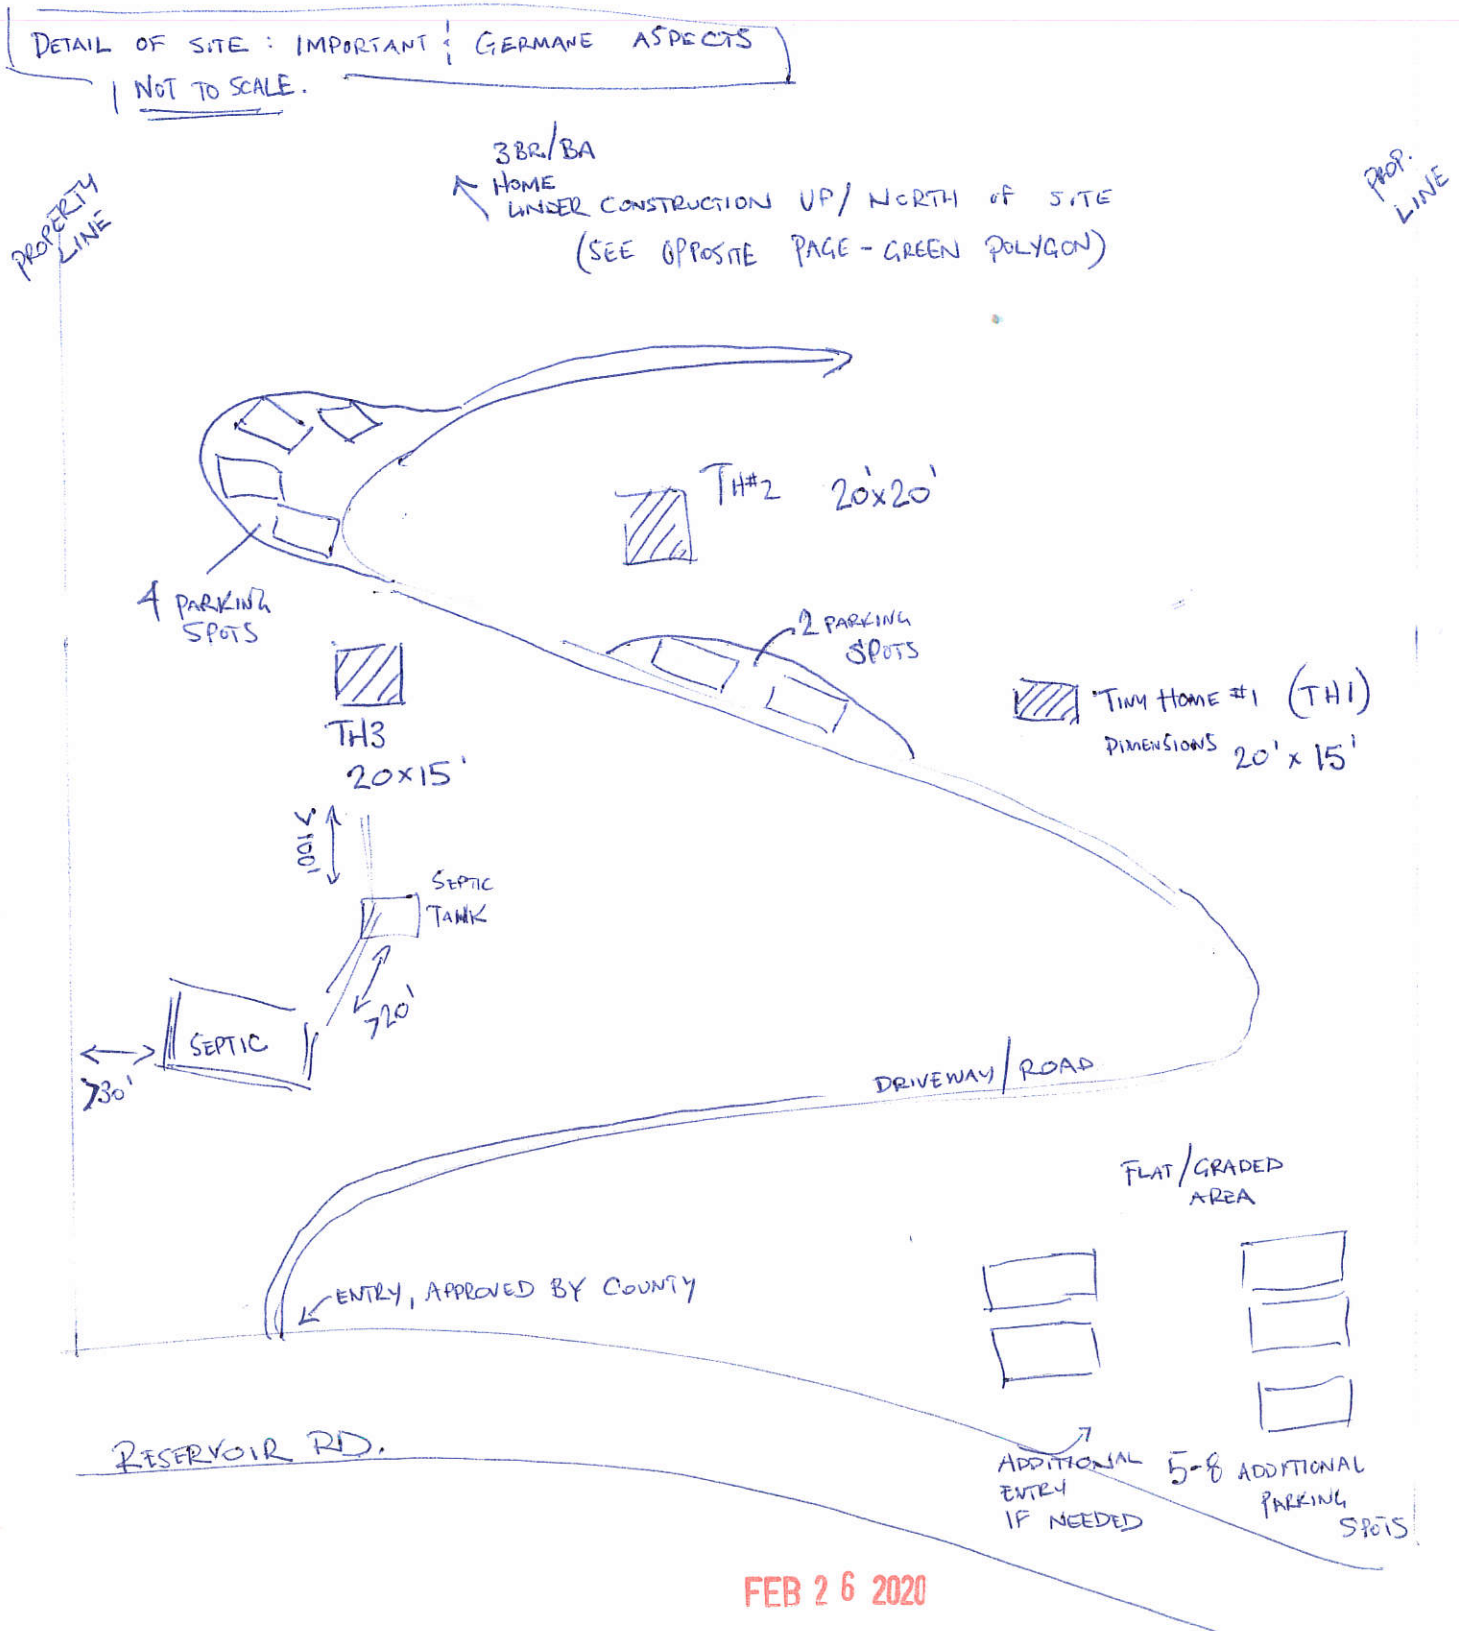 DETAIL OF SITE : IMPORTANT & GERMANE ASPECTS
NOT TO SCALE.
3 BR/BA
HOME
UNDER CONSTRUCTION UP/NORTH OF SITE
(SEE OPPOSITE PAGE - GREEN POLYGON)
PROPERTY
LINE
PROP.
LINE
TH#2 20'x20'
4 PARKING
SPOTS
2 PARKING
SPOTS
TH3
20x15'
TINY HOME #1 (TH1)
DIMENSIONS 20' x 15'
SEPTIC
TANK
>20'
SEPTIC
>30'
DRIVEWAY/ROAD
FLAT/GRADED
AREA
ENTRY, APPROVED BY COUNTY
RESERVOIR RD.
ADDITIONAL
ENTRY
IF NEEDED
5-8 ADDITIONAL
PARKING
SPOTS
FEB 26 2020